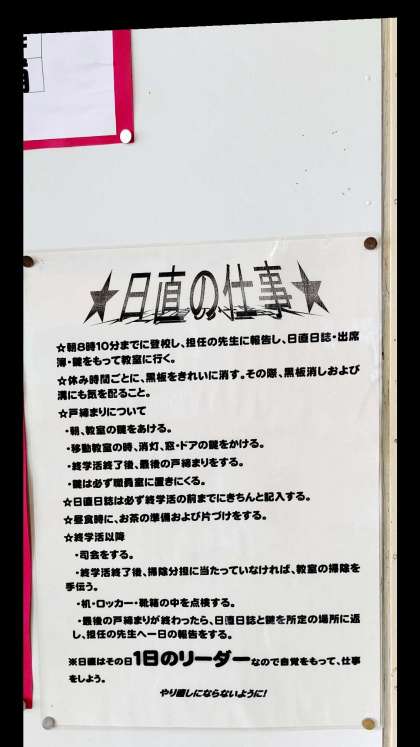 ★日直の仕事★
☆朝8時10分までに登校し、担任の先生に報告し、日直日誌・出席
簿・鍵をもって教室に行く。
☆休み時間ごとに、黒板をきれいに消す。その際、黒板消しおよび
溝にも気を配ること。
☆戸締まりについて
・朝、教室の鍵をあける。
・移動教室の時、消灯、窓・ドアの鍵をかける。
・終学活終了後、最後の戸締まりをする。
・鍵は必ず職員室に置きにくる。
☆日直日誌は必ず終学活の前までにきちんと記入する。
☆昼食時に、お茶の準備および片づけをする。
☆終学活以降
・司会をする。
・終学活終了後、掃除分担に当たっていなければ、教室の掃除を
手伝う。
・机・ロッカー・靴箱の中を点検する。
・最後の戸締まりが終わったら、日直日誌と鍵を所定の場所に返
し、担任の先生へ一日の報告をする。
※日直はその日1日のリーダーなので自覚をもって、仕事
をしよう。
やり直しにならないように!